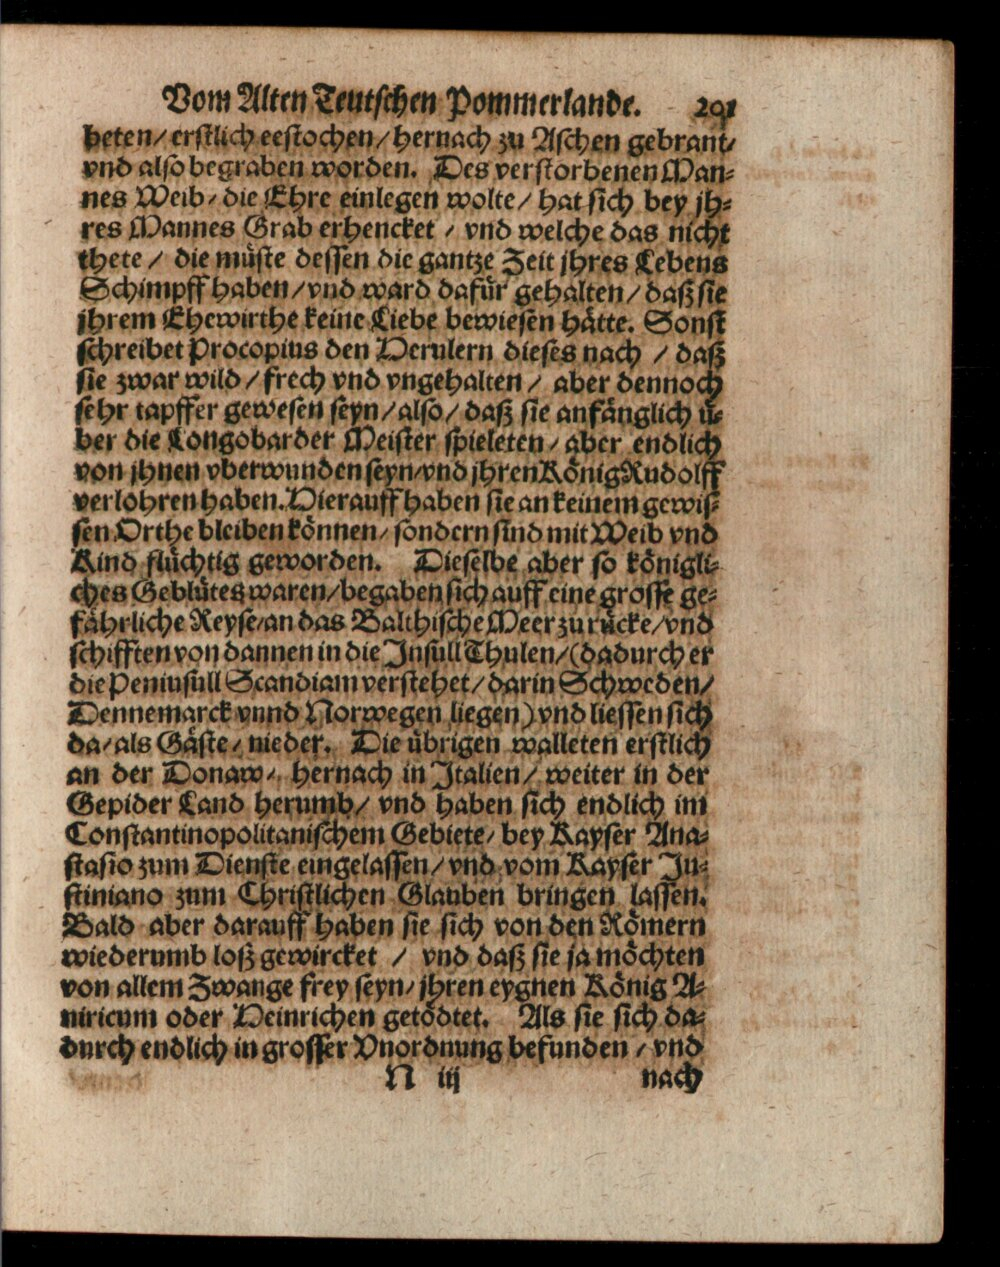 Vom Alten Teutschen Pommerlande. 201
beten/ erstlich eestochen/ hernach zu Aschen gebrant/
vnd also begraben worden. Des verstorbenen Man⸗
nes Weib/ die Ehre einlegen wolte/ hat sich bey jh⸗
res Mannes Grab erhencket / vnd welche das nicht
thete / die müste dessen die gantze Zeit jhres Lebens
Schimpff haben/ vnd ward dafür gehalten/ daß sie
jhrem Ehewirthe keine Liebe bewiesen hätte. Sonst
schreibet Procopius den Herulern dieses nach / daß
sie zwar wild/ frech vnd vngehalten/ aber dennoch
sehr tapffer gewesen seyn/ also/ daß sie anfänglich ü⸗
ber die Longobarder Meister spieleten/ aber endlich
von jhnen vberwunden seyn/ vnd jhren König Rudolff
verlohren haben. Hierauff haben sie an keinem gewis⸗
sen Orthe bleiben können/ sondern sind mit Weib vnd
Kind flüchtig geworden. Dieselbe aber so königli⸗
ches Geblütes waren/ begaben sich auff eine grosse ge⸗
fährliche Reyse/ an das Balthische Meer zu rücke/ vnd
schifften von dannen in die Insull Thulen/ (dadurch er
die Peniusull Scandiam verstehet/ darin Schweden/
Dennemarck vnnd Norwegen liegen) vnd liessen sich
da/ als Gäste/ nieder. Die übrigen walleten erstlich
an der Donaw/ hernach in Italien/ weiter in der
Gepider Land herumb/ vnd haben sich endlich im
Constantinopolitanischem Gebiete/ bey Kayser Ana⸗
stasio zum Dienste eingelassen/ vnd vom Kayser Ju⸗
stiniano zum Christlichen Glauben bringen lassen.
Bald aber darauff haben sie sich von den Römern
wiederumb loß gewircket / vnd daß sie ja möchten
von allem Zwange frey seyn/ jhren eygnen König A⸗
niricum oder Heinrichen getödtet. Als sie sich da⸗
durch endlich in grosser Vnordnung befunden / vnd
N iij nach